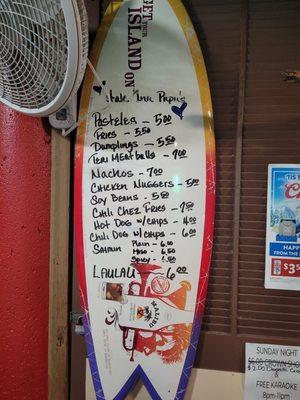 GET YOUR
ISLAND ON
Pasteles - 5.00
Fries - 5.50
Dumplings - 5.50
Teri Meatballs - 7.00
Nachos - 7.00
Chicken Nuggets - 5.00
Soy Beans - 5.50
Chili Chez Fries - 9.50
Hot Dog w/chips - 4.00
Chili Dog w/chips - 6.00
Saimin Plain - 6.00
Miso - 6.50
Spicy - 6.50
Laulau - 6.00
MALIBU
HAPP
FROM
$3
SUNDAY NIGHT
&
FREE KARAOKE
8pm-11pm